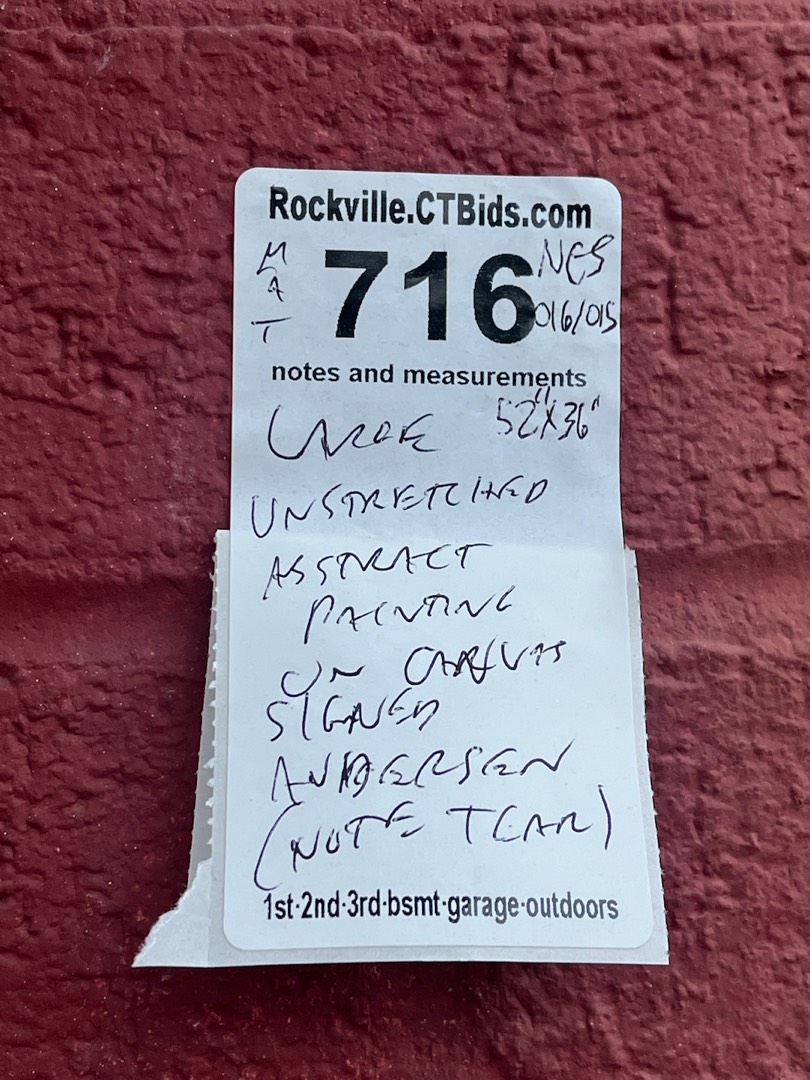 Rockville.CTBids.com
MAT 716 NES
016/015
notes and measurements
LARGE 52"X36"
UNSTRETCHED
ABSTRACT
PAINTING
ON CANVAS
SIGNED
ANDERSEN
(NOTE TEAR)
1st·2nd·3rd·bsmt·garage·outdoors